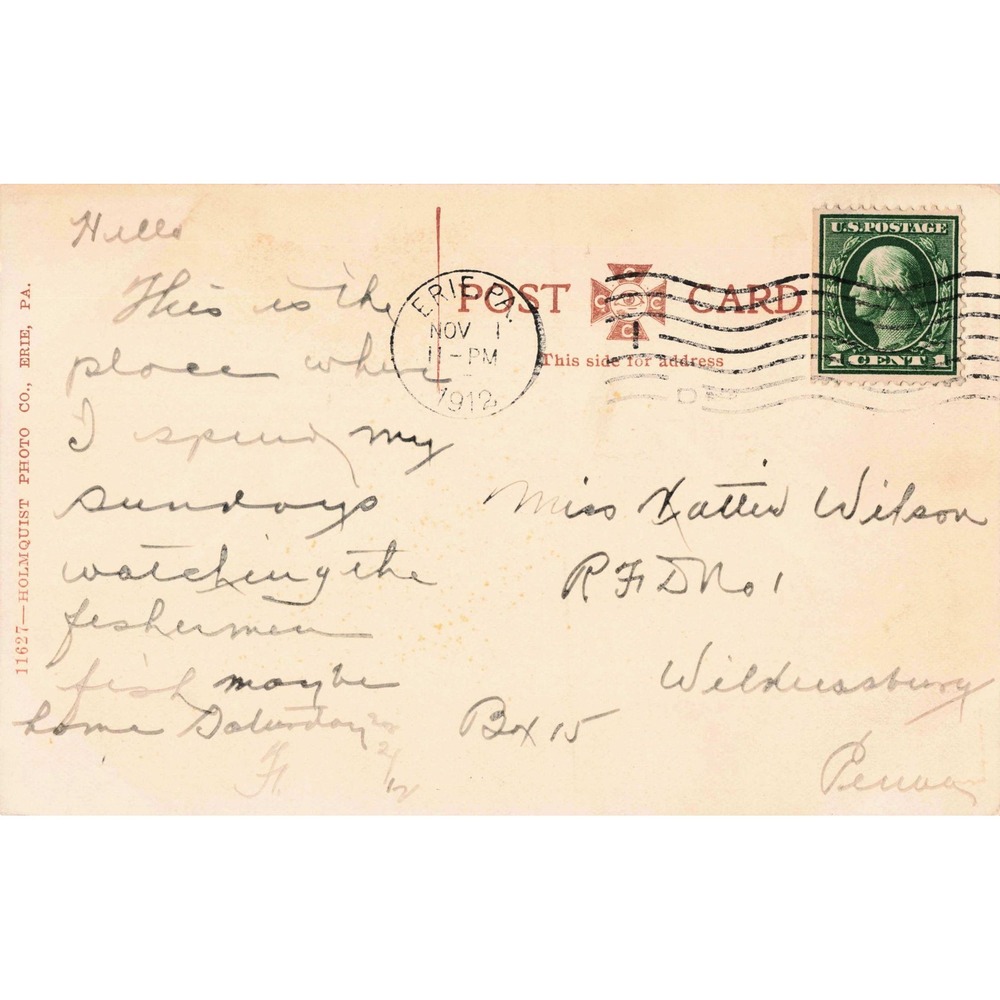 Hello
This is the
place where
I spend my
sundays
watching the
fishermen
fish maybe
home Saturday
F.
11627—HOLMQUIST PHOTO CO., ERIE, PA.
POST CARD
This side for address
ERIE, PA.
NOV 1
11-PM
1912
U.S. POSTAGE
1 CENT 1
Miss Hattie Wilson
R F D No 1
Box 15
Penna